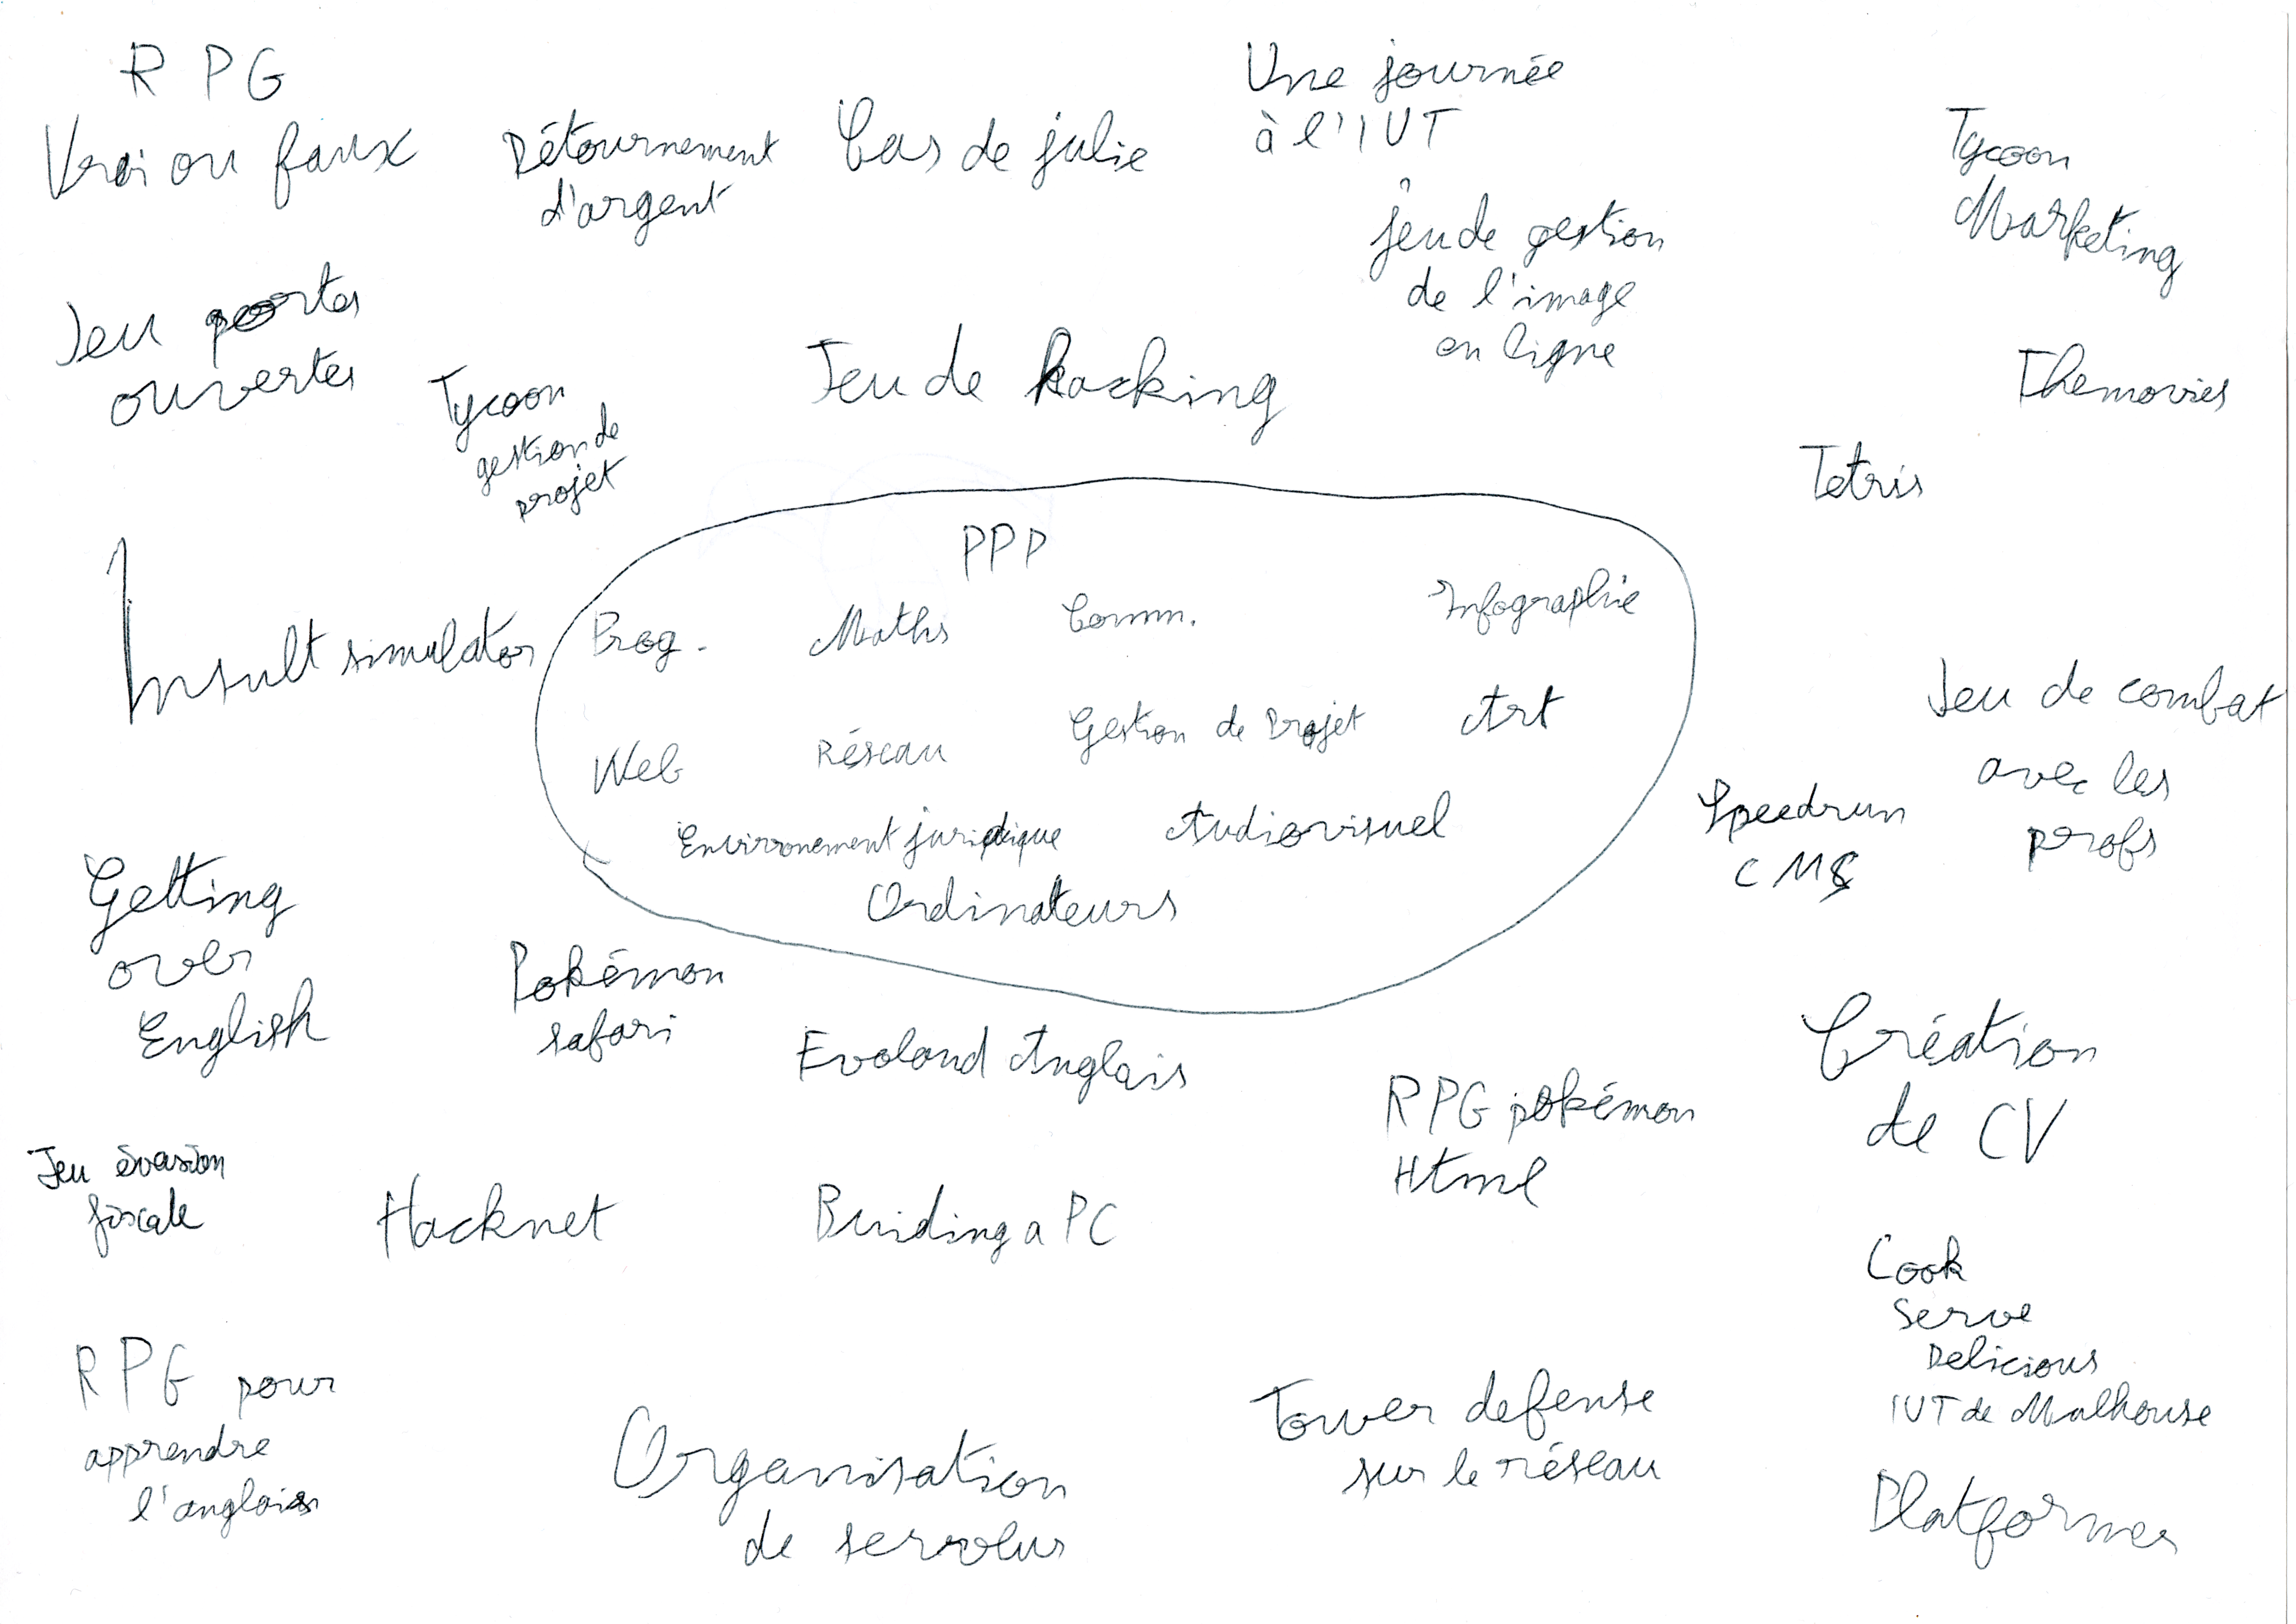 RPG
Vrai ou faux
Détournement
d'argent
Cas de julie
Une journée
à l'IUT
Tycoon
Marketing
jeu de gestion
de l'image
en ligne
Jeu portes
ouvertes
Tycoon
gestion de
projet
Jeu de hacking
Themovies
Tetris
Insult simulator
PPP
Prog.
Maths
Comm.
Infographie
Web
Réseau
Gestion de Projet
Art
Environement juridique
Audiovisuel
Ordinateurs
Jeu de combat
avec les
profs
Speedrun
CMS
Getting
over
English
Pokémon
safari
Evoland Anglais
RPG pokémon
Html
Création
de CV
Jeu évasion
fiscale
Hacknet
Buiding a PC
Cook
Serve
Delicious
IUT de Mulhouse
RPG pour
apprendre
l'anglais
Organisation
de serveurs
Tower defense
sur le réseau
Platformer